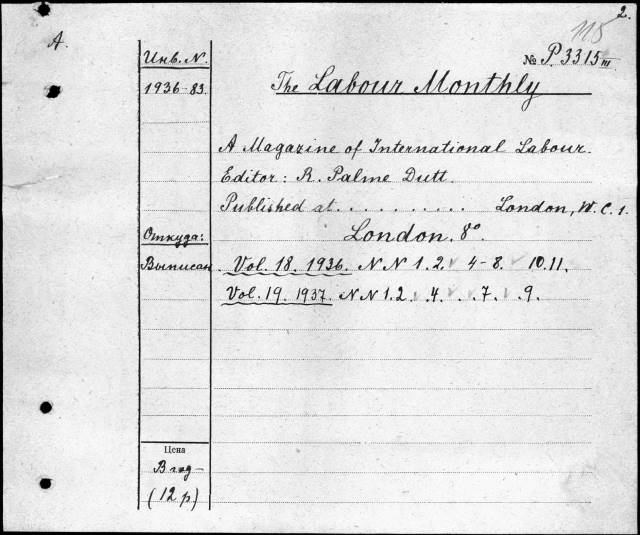 2.
115
A.
Инв. N.
№ P.3315 III
1936-83.
The Labour Monthly
A Magazine of International Labour.
Editor: R. Palme Dutt.
Published at . . . . . . . . . . London, W.C.1.
Откуда:
London. 8°.
Выписан.
Vol. 18. 1936. N N 1. 2. ✓ 4-8. ✓ 10. 11.
Vol. 19. 1937. N N 1. 2. ✓ . 4. ✓ . ✓ . 7. ✓ . 9.
Цена
В год-
(12 р)